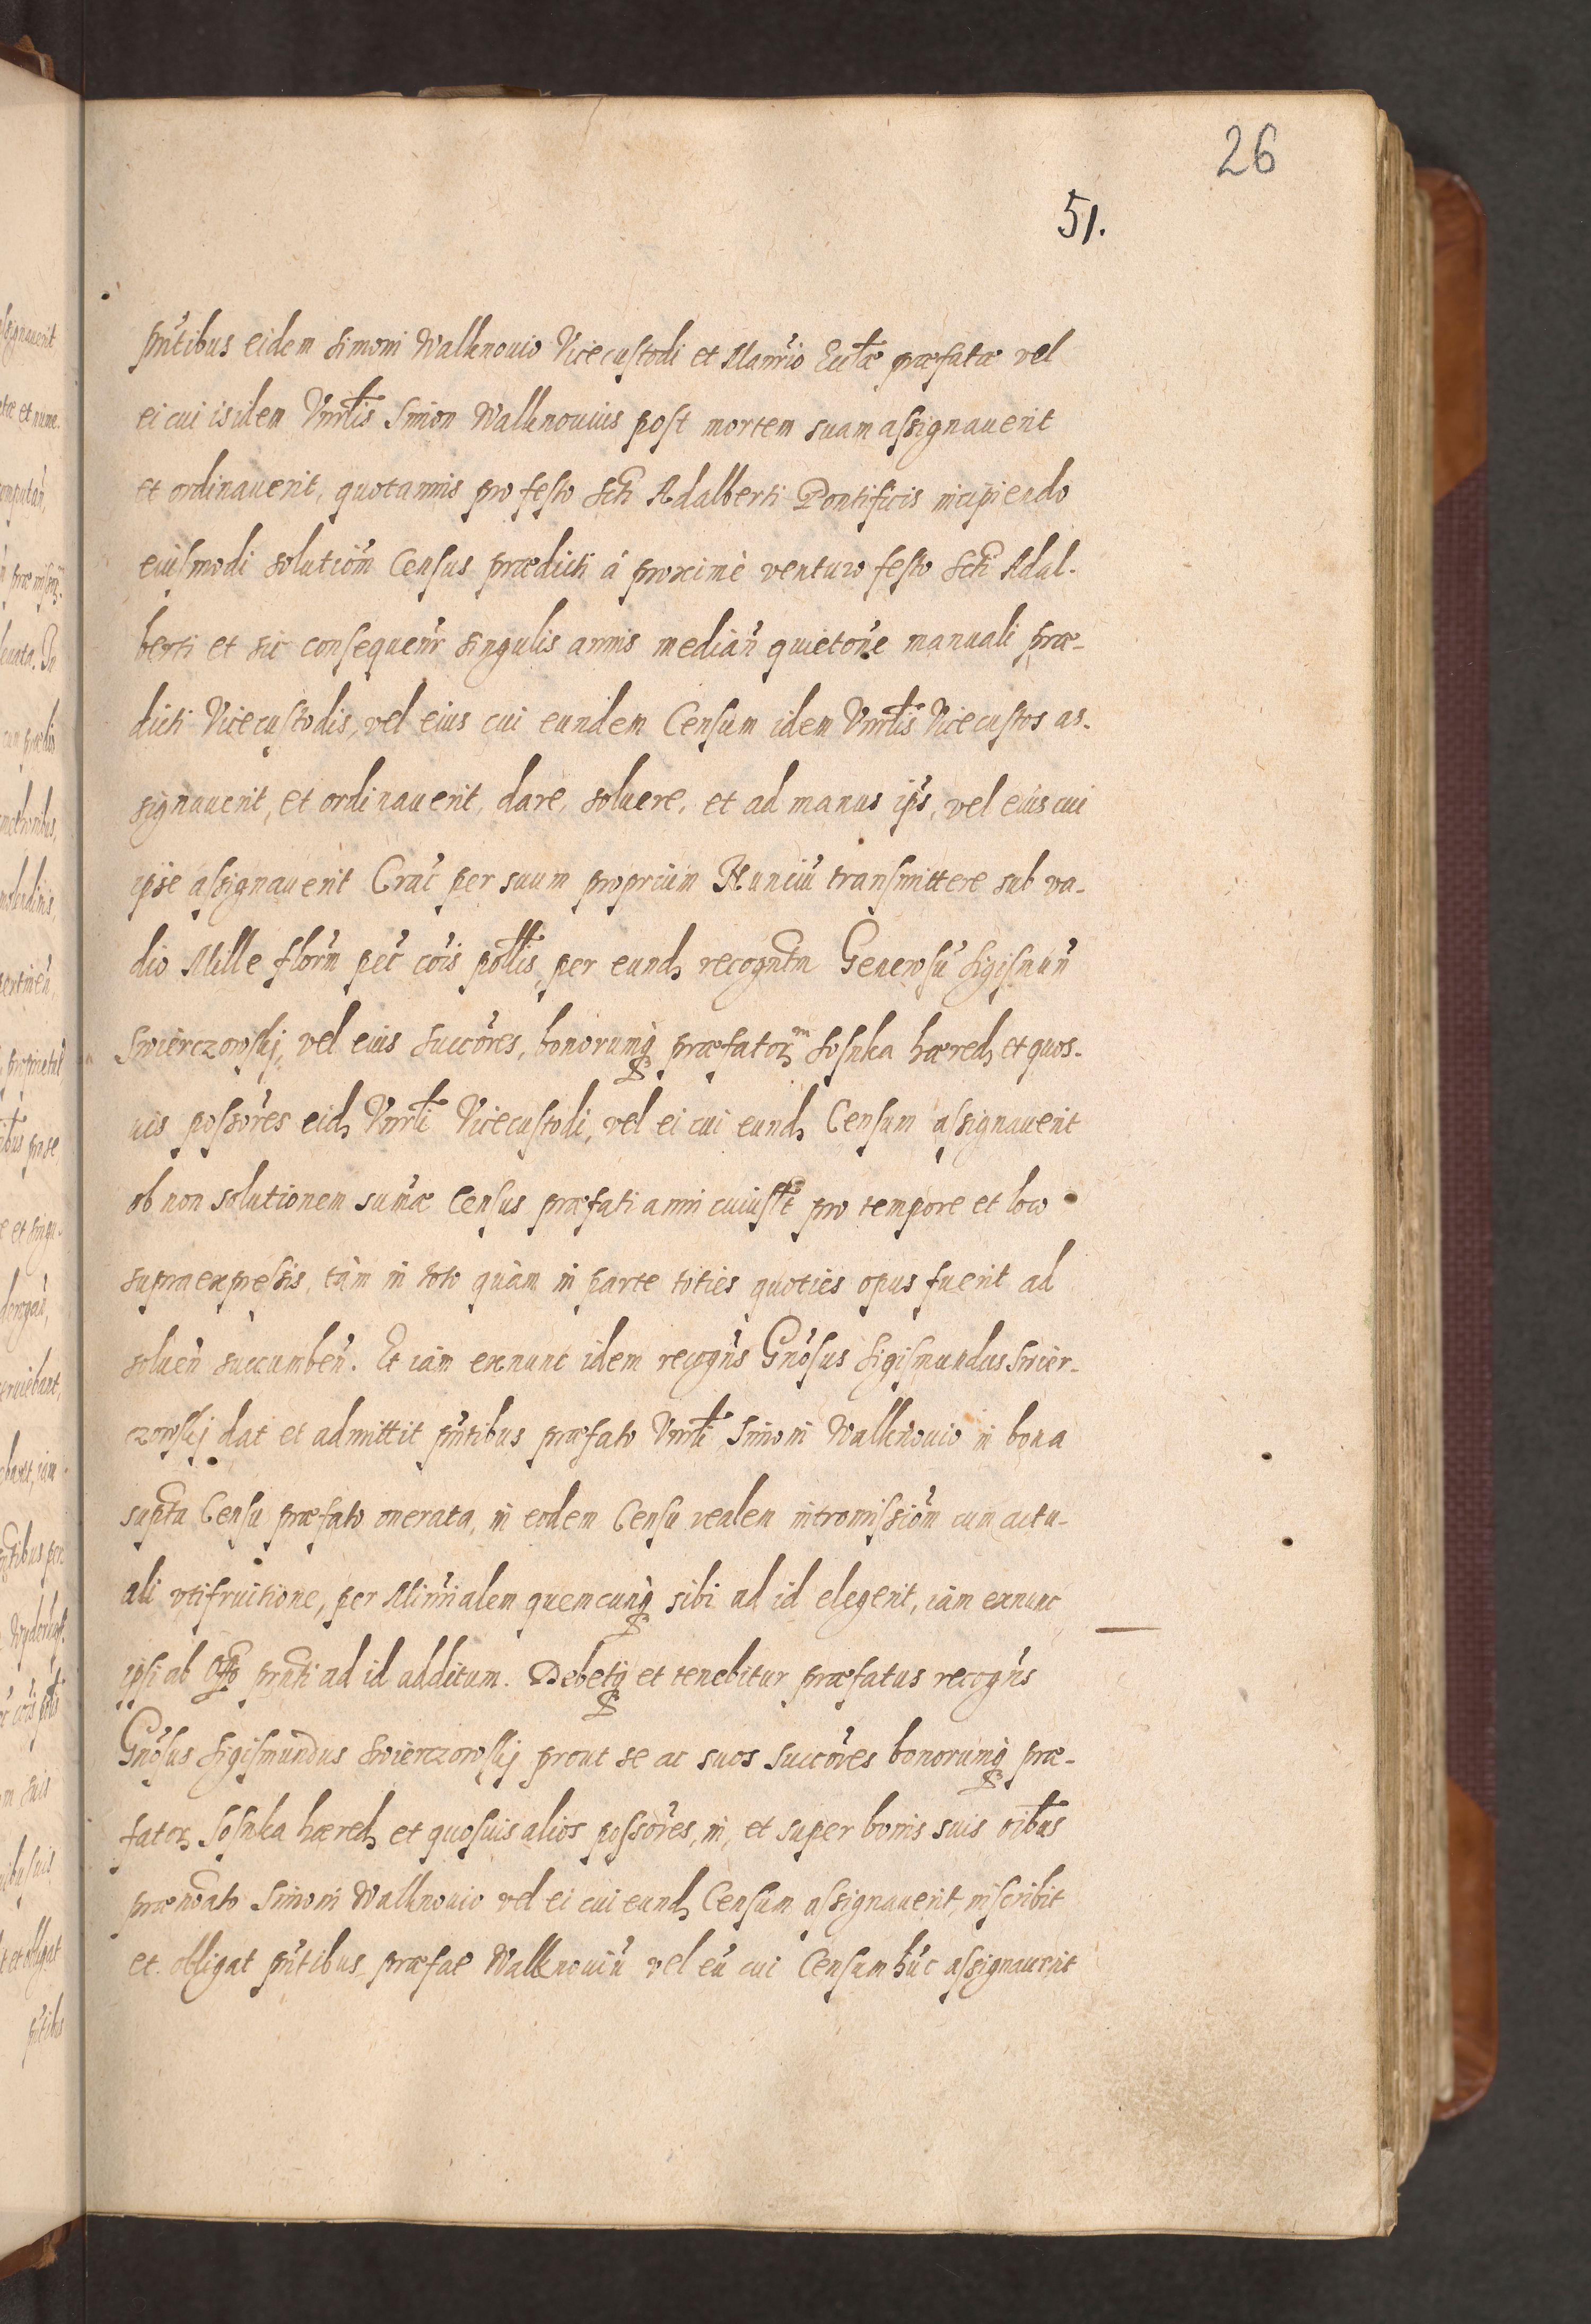 26
51.
pñtibus eidem Simoni Walknouio Vicecustodi et Mansrio Ecctæ præfatæ vel
ei cui isidem Vnrłis Simon Walknouius post mortem suam assignauerit
et ordinauerit, quotannis pro festo Scti Adalberti Pontificis incipiendo
eiusmodi solutiom̃ Census prædicti á proximè venturo festo Scti Adal-
berti et sic consequenr̃ singulis annis mediañ quietoñe manuali præ-
dicti Vicecustodis, vel eius cui eundem Censum idem Vnrłis Vicecustos as-
signauerit, et ordinauerit, dare, soluere, et ad manus ip̃s, vel eius cui
ipse assignauerit Crac̃ per suum proprium Nunciũ transmittere sub va-
dio Mille florm̃ pec̃ cõis połłis, per eundꝫ recognt̃m Generosũ Sigismuñ
Swierczowskj, vel eius succõres, bonorumqꝫ præfatoꝝ Sosnka hæredꝫ et quos-
uis possõres eidꝫ Vnrłi Vicecustodi, vel ei cui eundꝫ Censum assignauerit
ob non solutionem sum̃æ Census præfati anni cuiusłt pro tempore et loco
supraexpressis, tàm in toto quàm in parte toties quoties opus fuerit ad
solueñ succumbeñ. Et iàm exnunc idem recogñs Gnõsus Sigismundus Swier-
czowskj dat et admittit pñtibus præfato Vnrłi Simoni Walknouio in bona
supt̃a Censu præfato onerata, in eodem Censu realem intromissiom̃ cum actu-
ali vtifruitione, per Minr̃ialem quemcunqꝫ sibi ad id elegerit, iàm exnunc
ipsi ab Offo prnt̃i ad id additum. Debetqꝫ et tenebitur præfatus recogñs
Gnõsus Sigismundus Swierczowskj prout se ac suos succõres bonorumqꝫ præ-
fatoꝝ Sosnka hæredꝫ et quosuis alios possõres, in, et super bonis suis oĩbus
prænoãto Simoni Walknouio vel ei cui eundꝫ Censum assignauerit, inscribit
et obligat pñtibus, præfae Walknouiũ vel eũ cui Censum hũc assignauerit